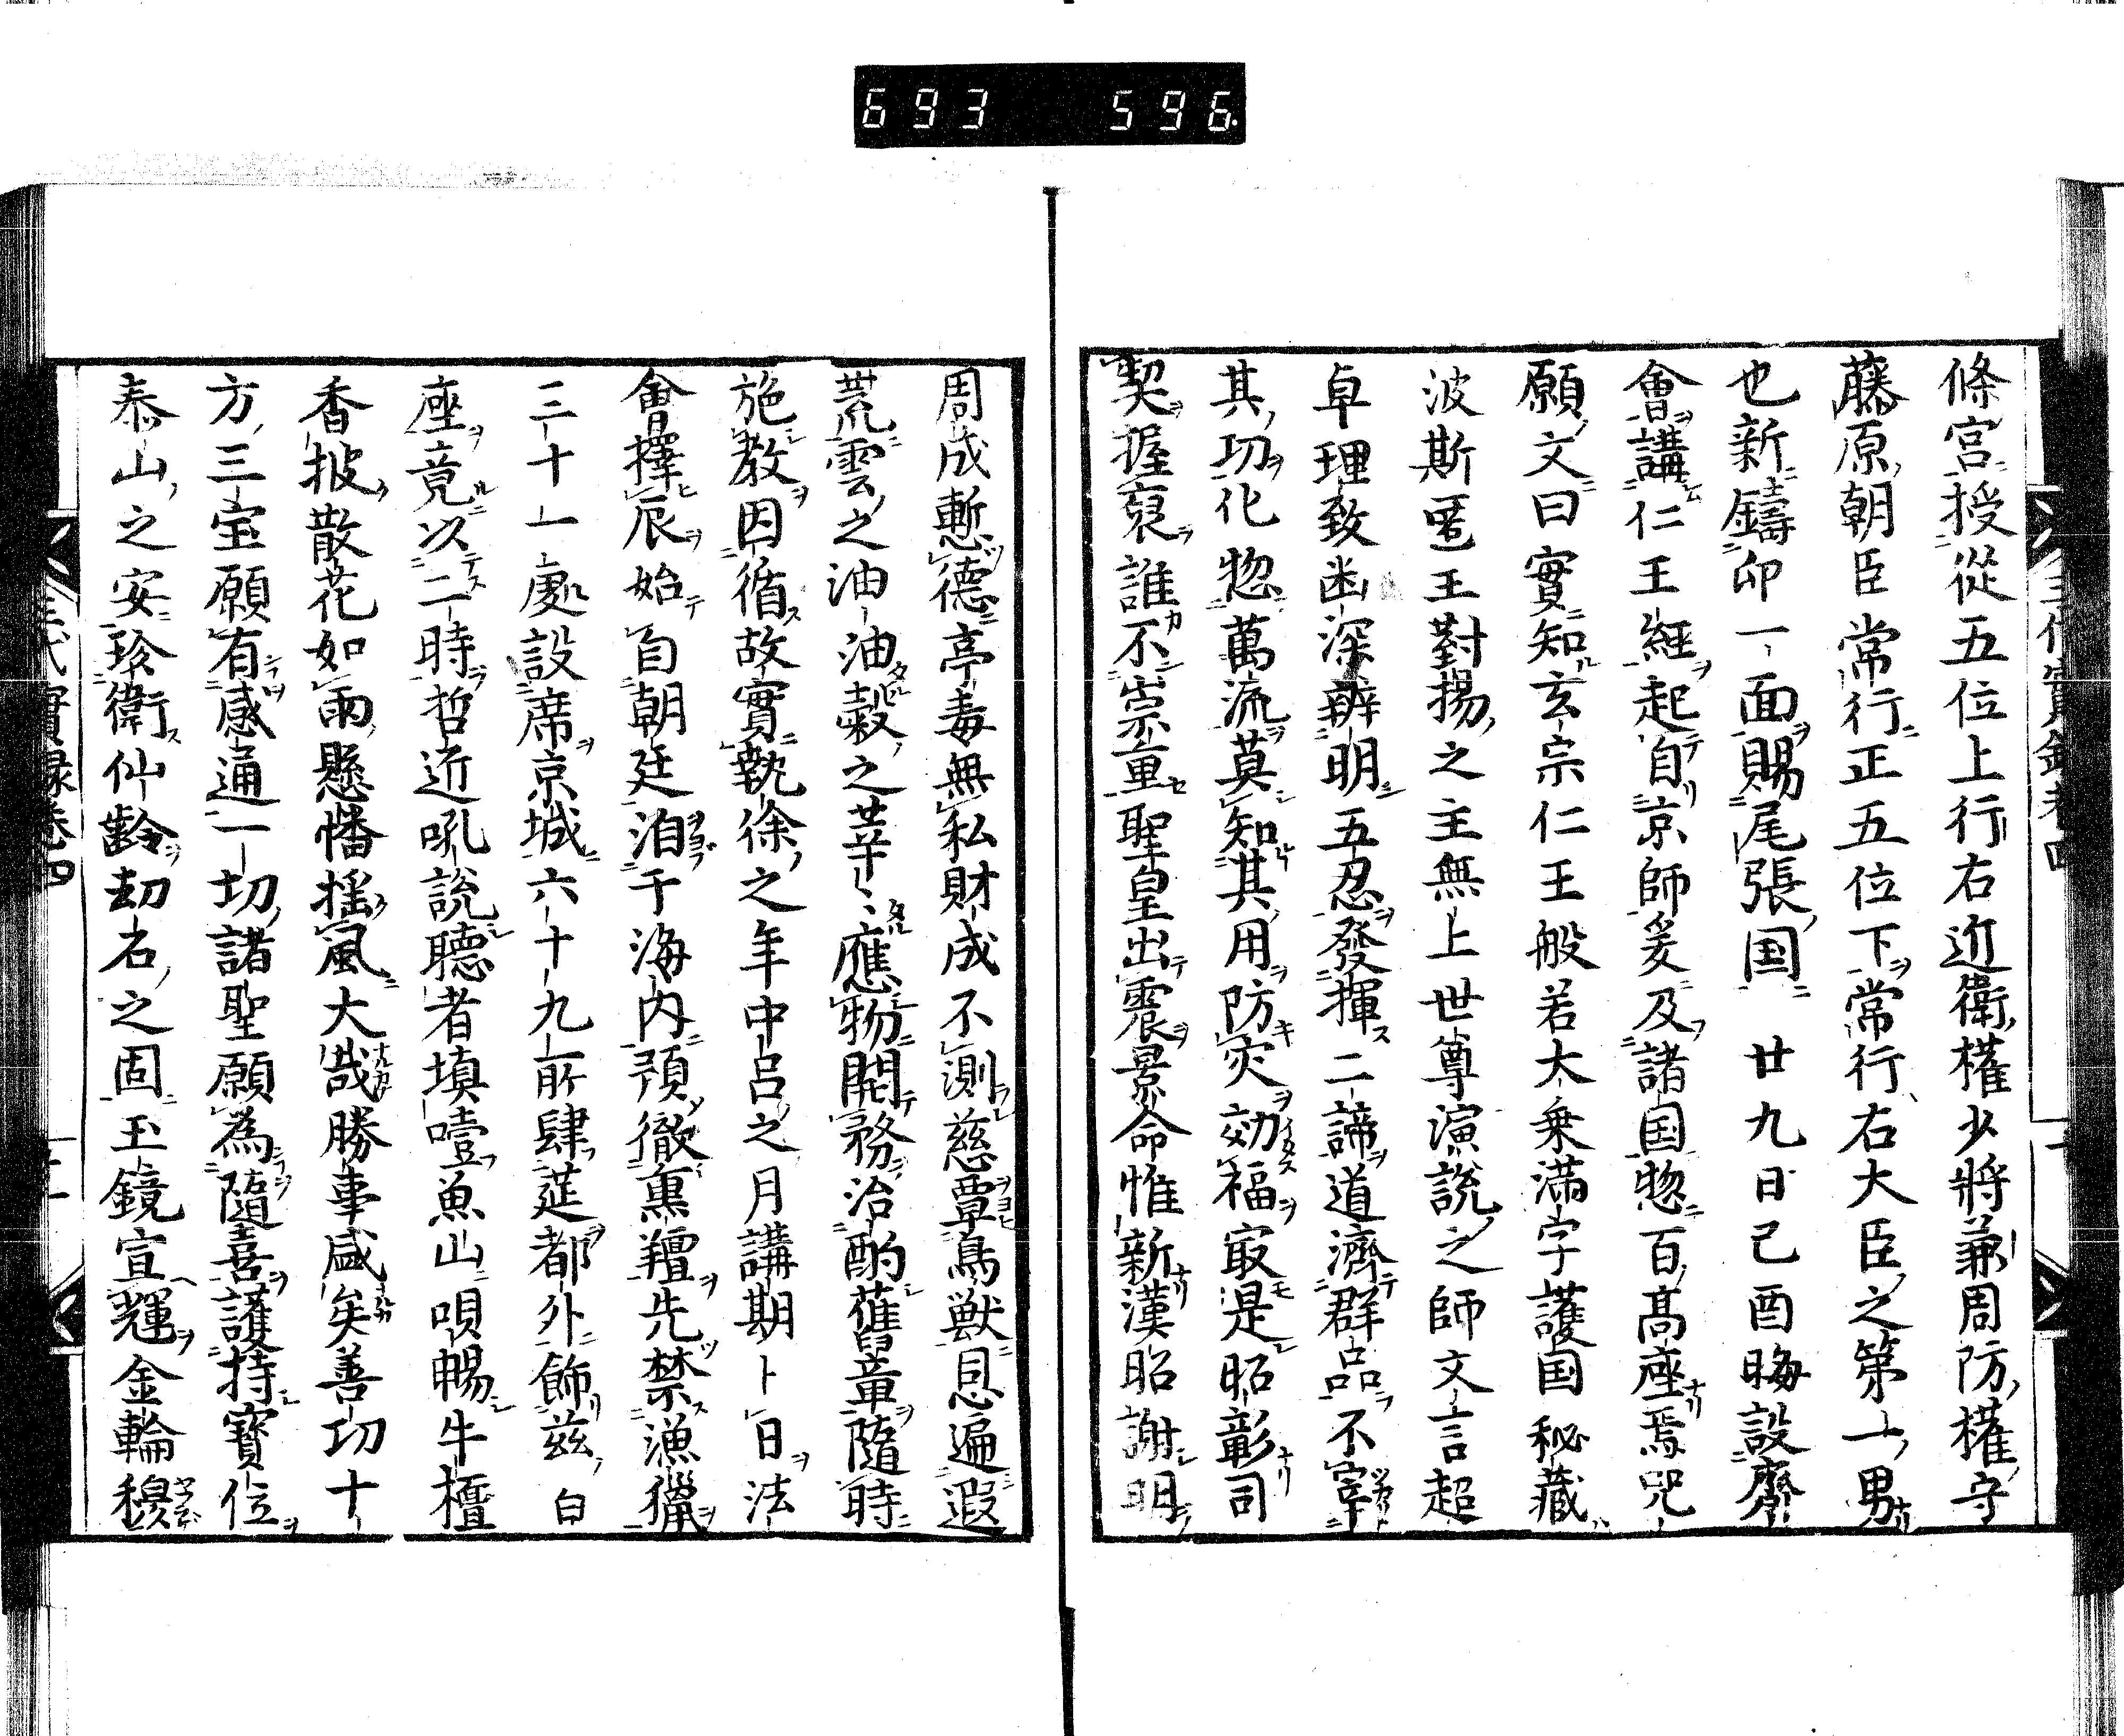 693 596
條宮授從五位上行右近衛權少將兼周防權守
藤原朝臣常行正五位下常行右大臣之第一男
也新鑄印一面賜尾張国 廿九日己酉晦設齋
會講仁王經起自京師爰及諸国惣百髙座焉咒
願文曰實知玄宗仁王般若大乗滿字護国秘藏
波斯匿王對揚之主無上世尊演說之師文言超
卓理致幽深辨明五忍發揮二諦道濟群品不宰
其功化惣萬流莫知其用防灾効福寂是昭彰司
契握裒誰不崇重聖皇出震景命惟新漢昭謝明
周成慙德亭毒無私財成不測慈覃鳥獣恩遍遐
荒雲之油油穀之芊〻應物開務治酌舊章隨時
施教因循故實執徐之年中呂之月講期卜日法
會擇辰始自朝廷洎于海内預徹熏羶先禁漁獵
三十一處設席京城六十九所肆莚都外飾茲白
座竟以二時哲近吼說聽者填噎魚山唄暢牛檀
香披散花如雨懸幡揺風大哉勝事盛矣善功十
方三宝願有感通一切諸聖願為隨喜護持寶位
泰山之安珍衛仙齡劫石之固玉鏡宣輝金輪穆